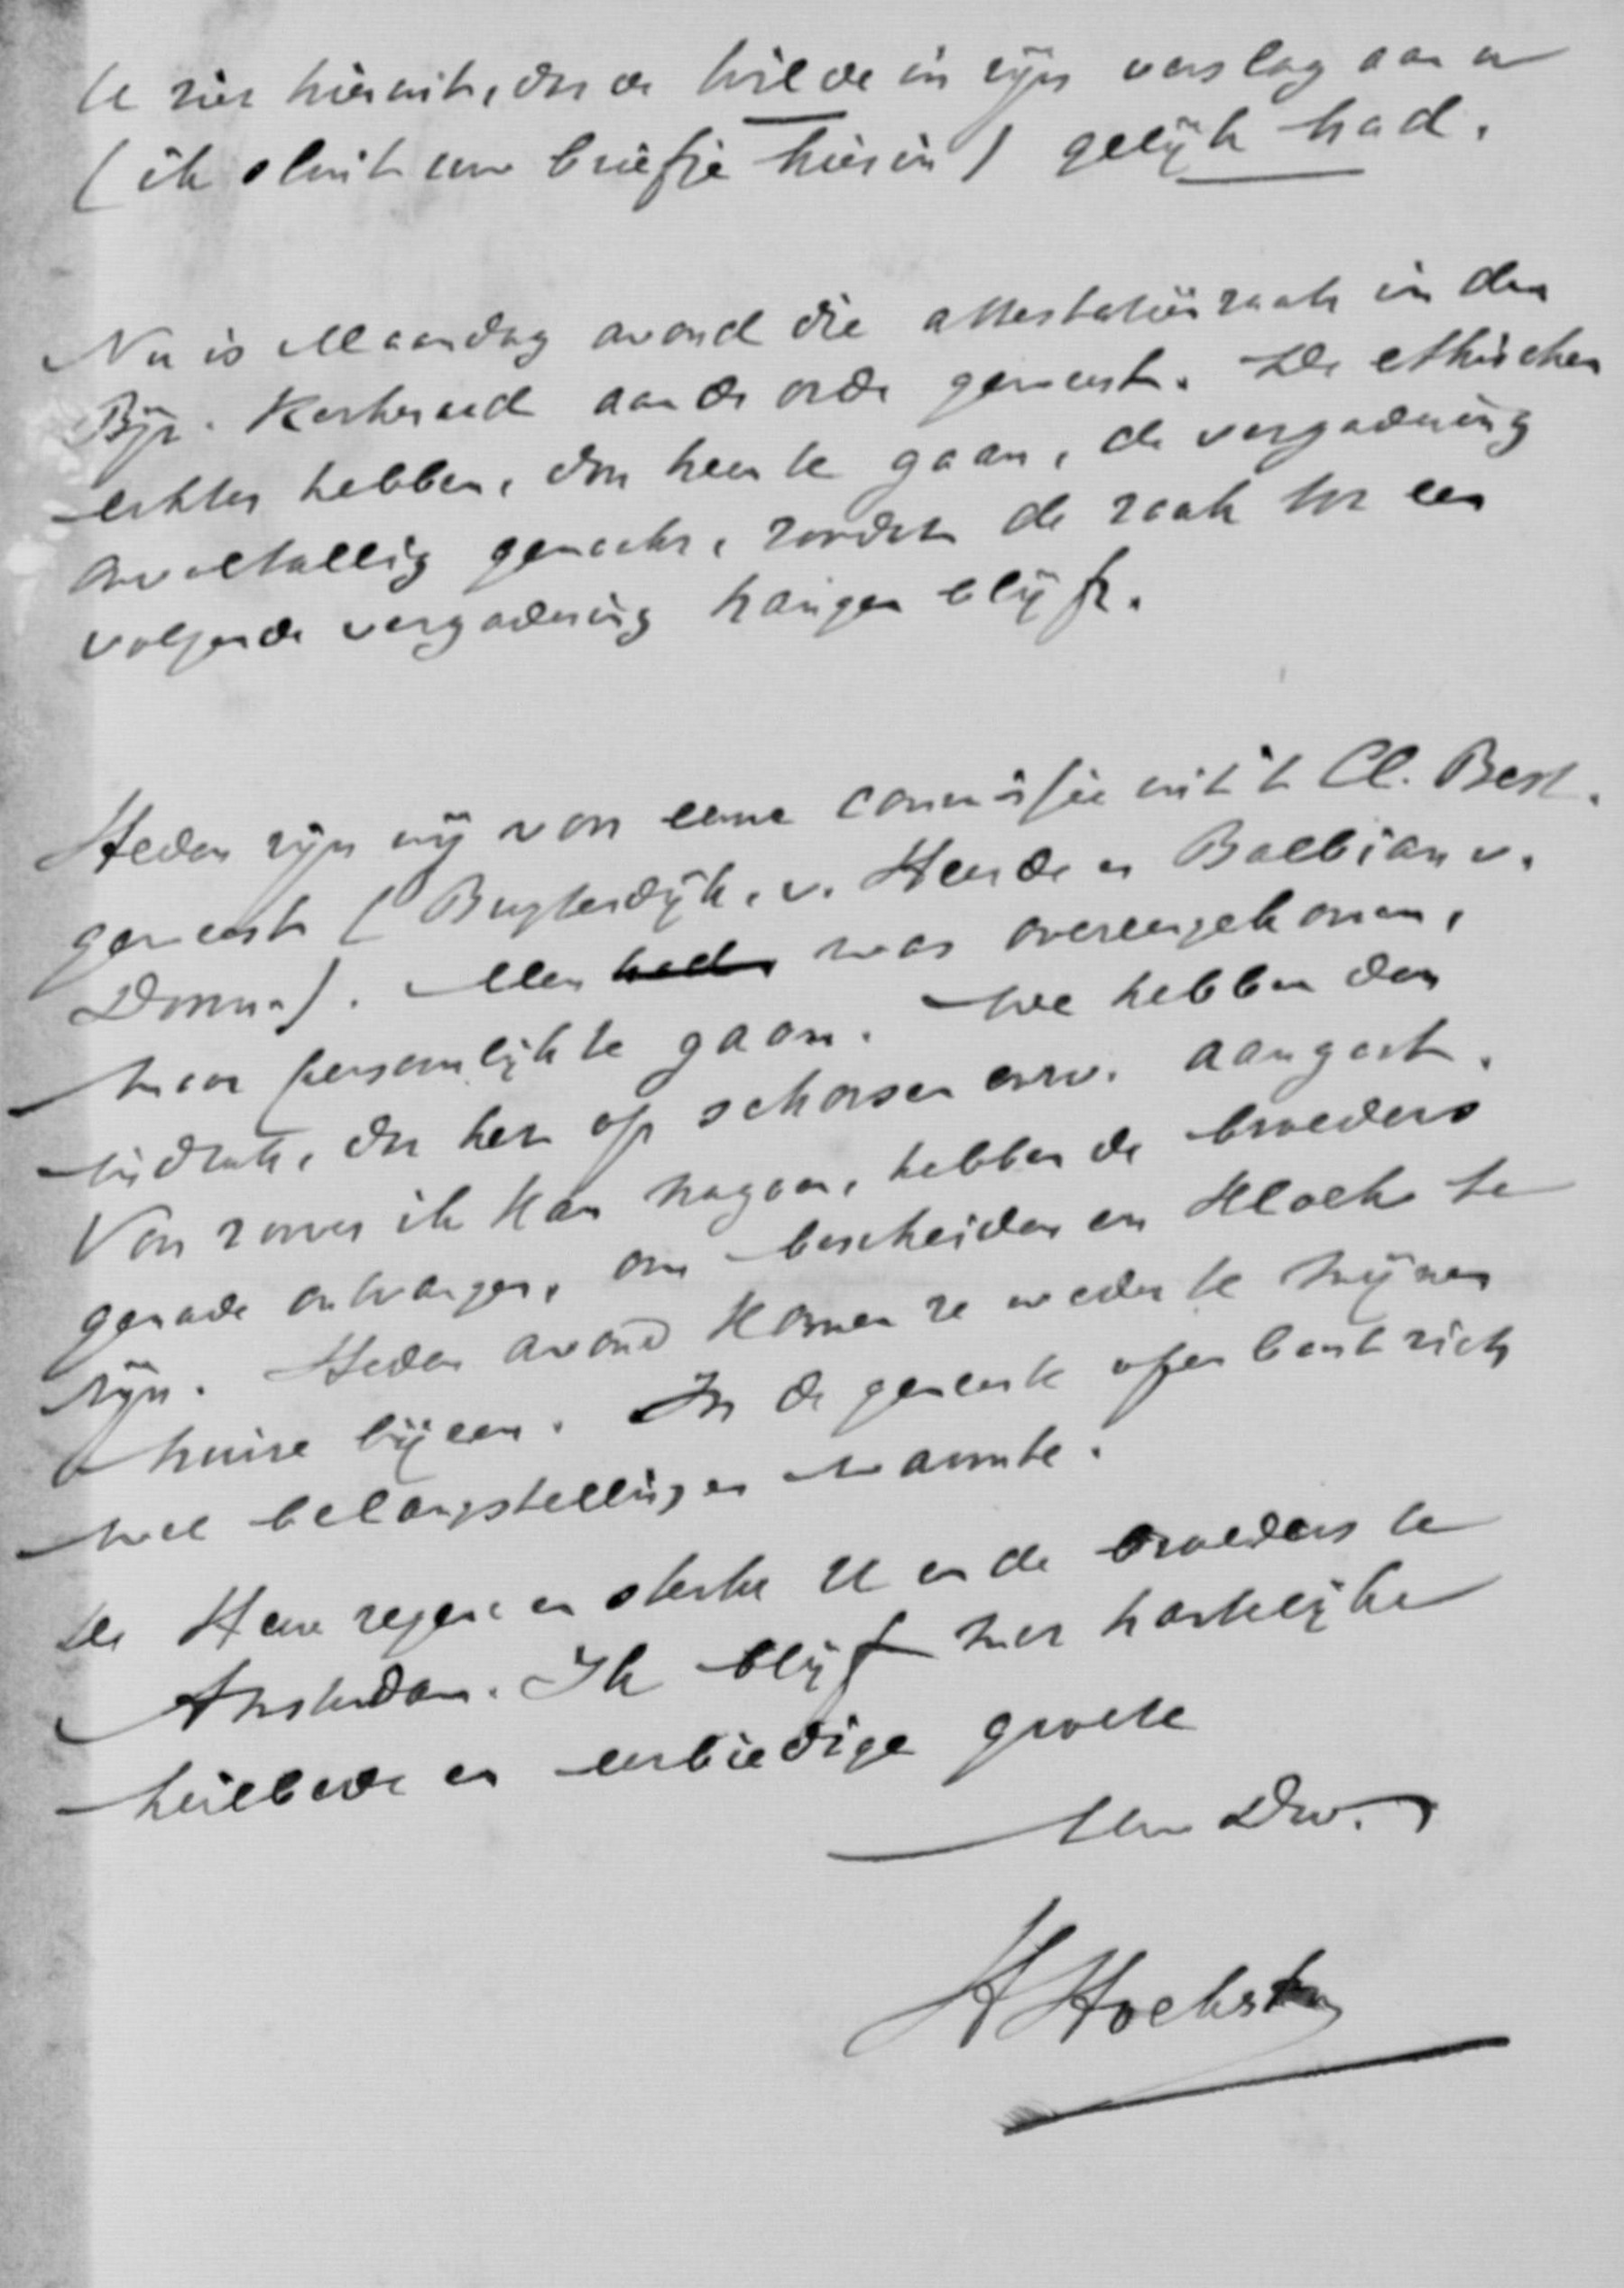 U ziet hieruit, dat de Wilde in zijn verslag aan u
(ik sluit uw briefje hierin) gelijk had.
Nu is Maandag avond die attestatiënzaak in den
Bijz. Kerkeraad aan de orde geweest. De ethischen
echter hebben, door heen te gaan, de vergadering
onvoltallig gemaakt, zoodat de zaak tot een
volgende vergadering hangen blijft.
Heden zijn wij voor eene commissie uit 't Cl. Best.
geweest (Buytendijk, v. Heerde en Balbian v.
Doorn). Men was overeengekomen,
maar persoonlijk te gaan. We hebben den
indruk, dat het op schorsen enz. aangaat.
Voor zoover ik kan nagaan, hebben de broeders
genade ontvangen, om bescheiden en kloek te
zijn. Heden avond komen ze weder te mijnen
huize bijeen. In de gemeente openbaart zich
veel belangstelling en warmte.
De Heere zegene en sterke U en de broeders te
Amsterdam. Ik blijf met hartelijke
heilbede en eerbiedige groete
Uw Dw.
H Hoekstra